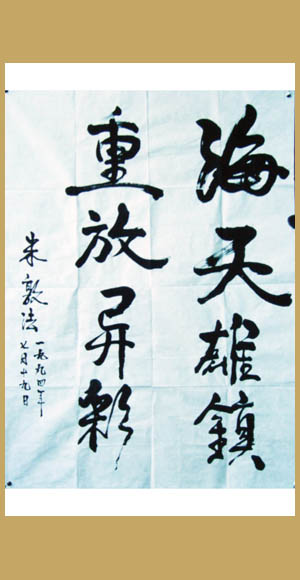 海天雄鎮
重放异彩
朱敦法
一九九四年
七月十九日